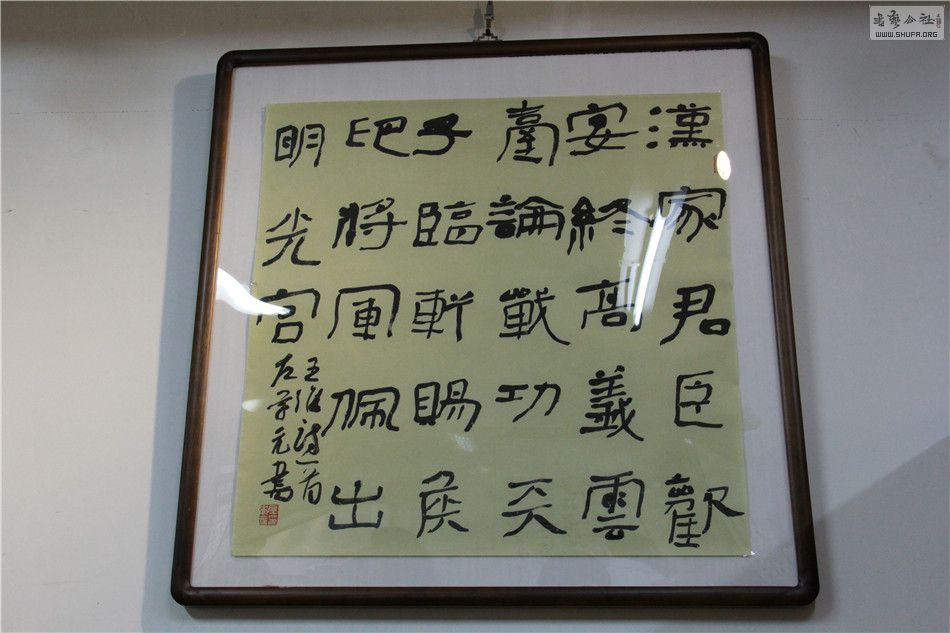 漢家君臣歡
宴終高義雲
臺論戰功天
子臨軒賜侯
印將軍佩出
明光宮
王維詩一首
左元書
書藝公社
WWW.SHUFA.ORG